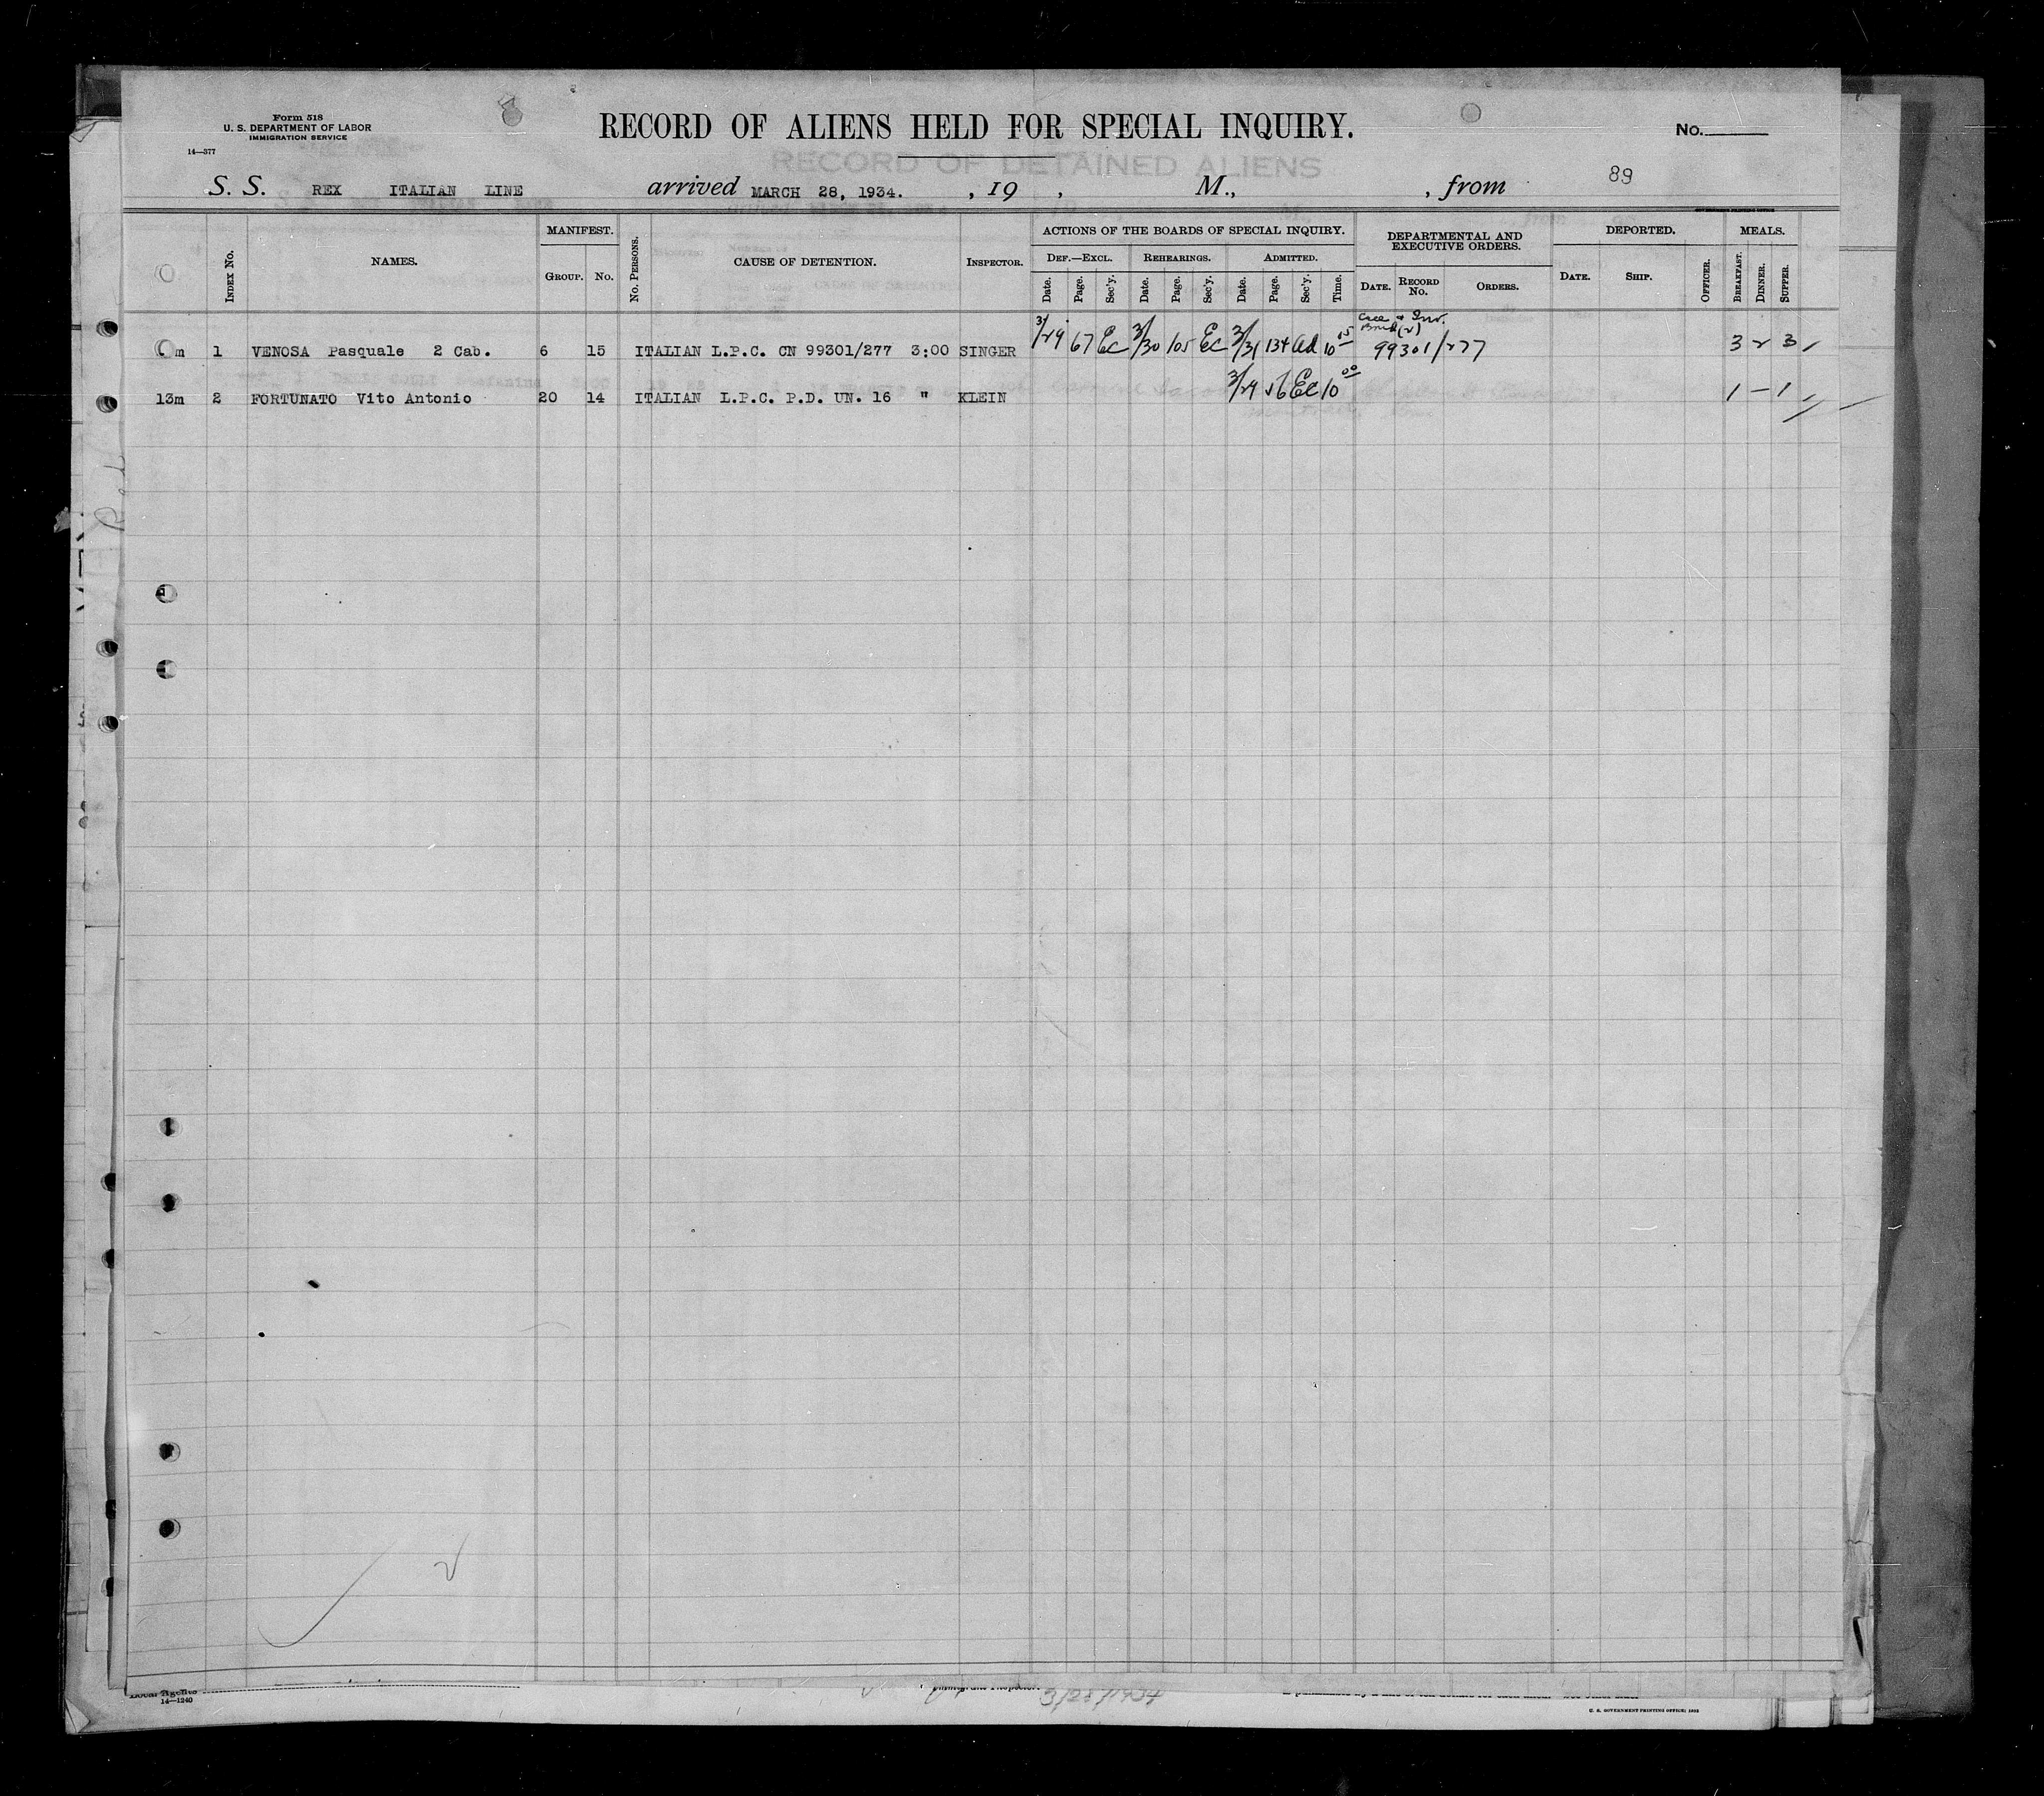 Form 518
U. S. DEPARTMENT OF LABOR
IMMIGRATION SERVICE
14—377
RECORD OF ALIENS HELD FOR SPECIAL INQUIRY.
No.
RECORD OF DETAINED ALIENS
89
S. S. REX ITALIAN LINE arrived MARCH 28, 1934. , 19 , M., , from
GOVERNMENT PRINTING OFFICE
Index No. NAMES. MANIFEST. Group. No. No. Persons. CAUSE OF DETENTION. Inspector. ACTIONS OF THE BOARDS OF SPECIAL INQUIRY. Def.—Excl. Date. Page. Sec'y. Rehearings. Date. Page. Sec'y. Admitted. Date. Page. Sec'y. Time. DEPARTMENTAL AND EXECUTIVE ORDERS. Date. Record No. Orders. DEPORTED. Date. Ship. Officer. MEALS. Breakfast. Dinner. Supper.
m 1 VENOSA Pasquale 2 Cab. 6 15 ITALIAN L.P.C. CN 99301/277 3:00 SINGER 3/29 67 EC 3/30 105 EC 3/31 134 Ad 10 15 99301/277 3 2 3
13m 2 FORTUNATO Vito Antonio 20 14 ITALIAN L.P.C. P.D. UN. 16 " KLEIN 3/29 56 EC 10 00 1 — 1
14—1240
3/28/1934
U. S. GOVERNMENT PRINTING OFFICE: 1932